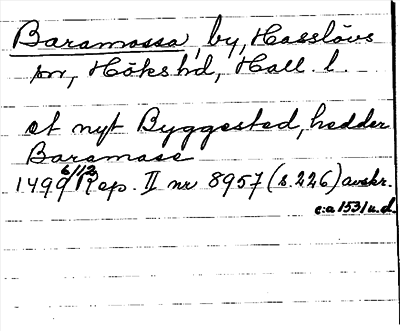 Baramossa, by, Hasslövs
sn, Hökshd, Hall. l.
et nyt Byggested, hedder
Baramose
1490 6/12 Rep. II nr 8957 (s. 226) avskr.
c:a 1531 u.d.